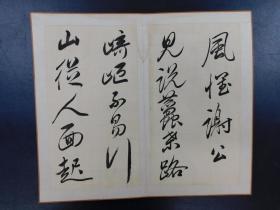 風怪謝公
見説蠶叢路
崎嶇不易行
山從人面起